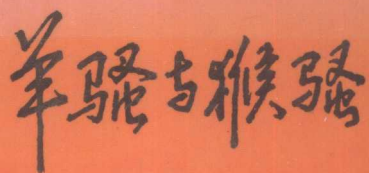 羊骚与猴骚